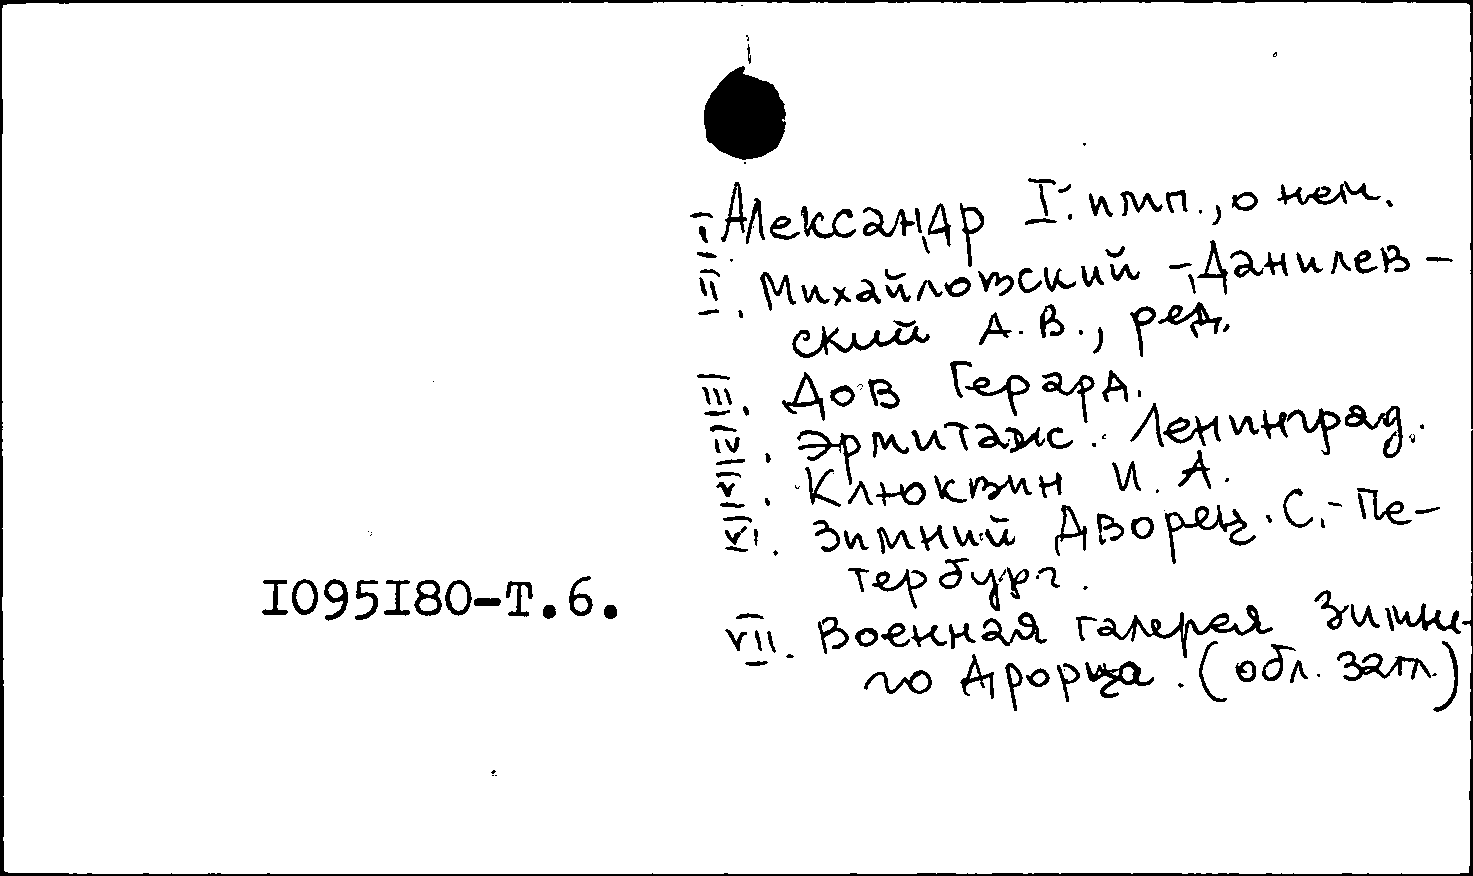 I. Александр I. имп., о нем.
II. Михайловский-Данилев-
ский А.В., ред.
III. Дов Герард.
IV. Эрмитаж. Ленинград.
V. Клюквин И.А.
VI. Зимний Дворец. С.-Пе-
тербург.
I095I80-Т.6.
VII. Военная галерея Зимне-
го Дрорца. (обл. загл.)